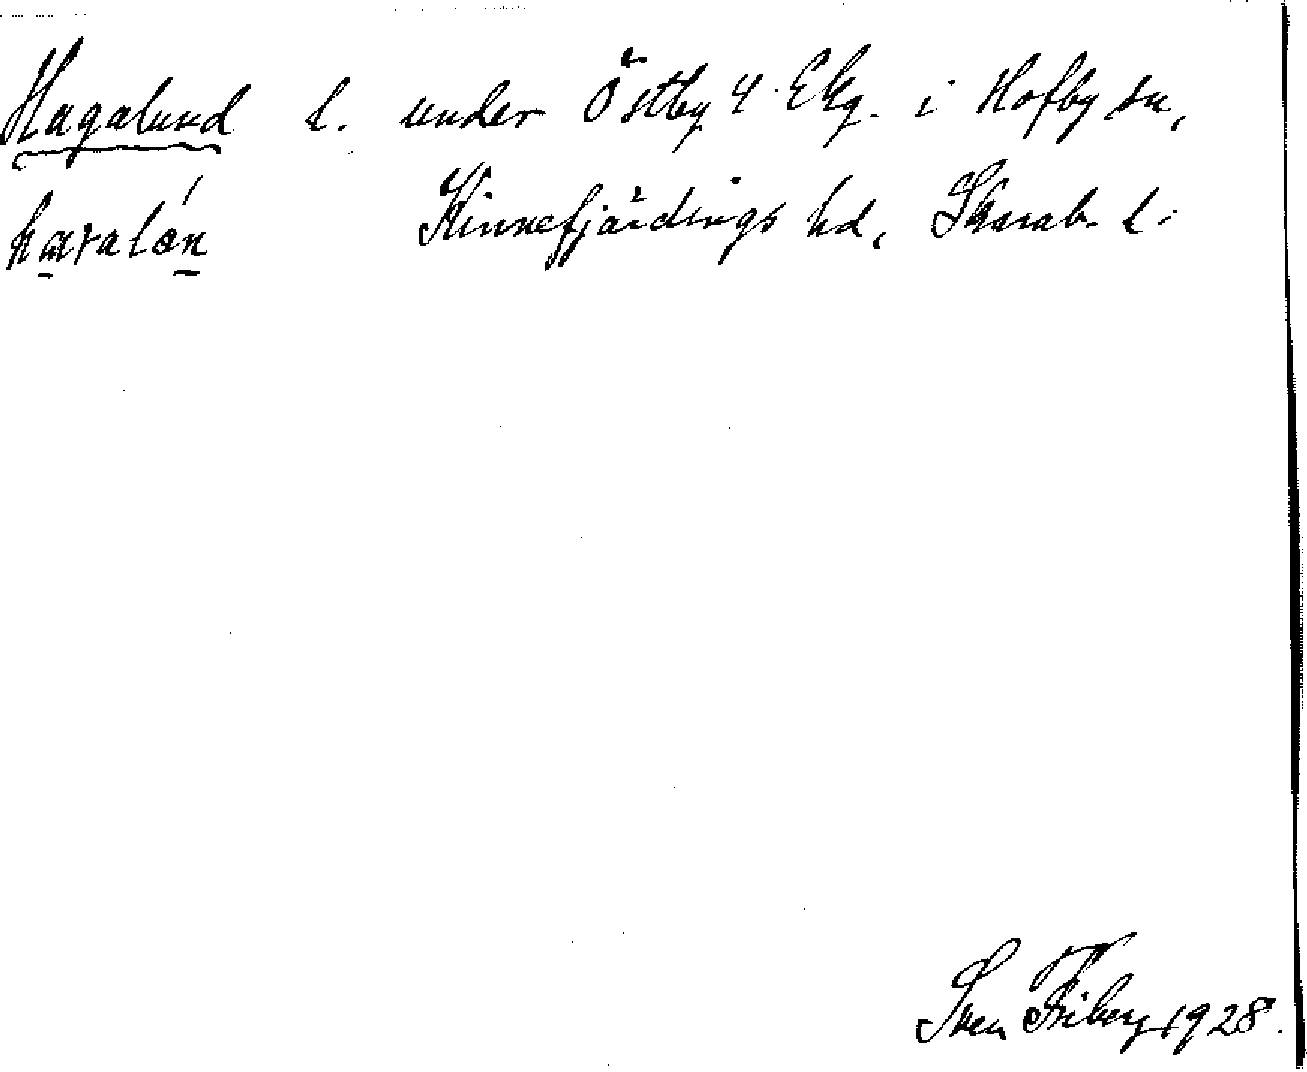 Hagalund l. under Östby 4 Ekg. i Hofby sn,
Kinnefjärdings hd, Skarab. l.
Sven Friberg 1928.